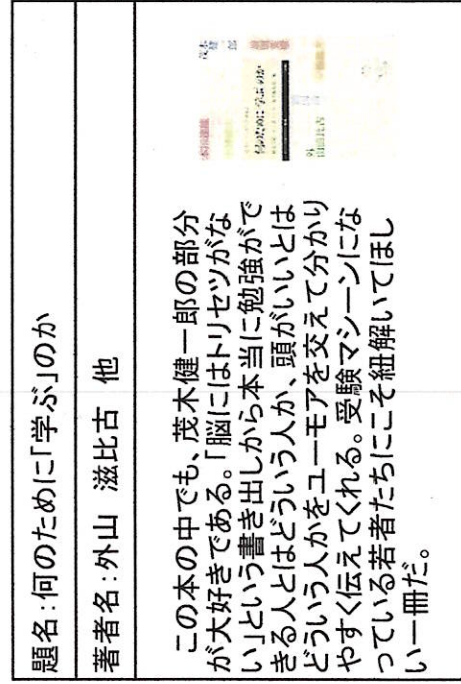 題名:何のために「学ぶ」のか
著者名:外山 滋比古 他
この本の中でも、茂木健一郎の部分
が大好きである。「脳にはトリセツがな
い」という書き出しから本当に勉強がで
きる人とはどういう人か、頭がいいとは
どういう人かをユーモアを交えて分かり
やすく伝えてくれる。受験マシーンにな
っている若者たちにこそ紐解いてほし
い一冊だ。
何のために「学ぶ」のか